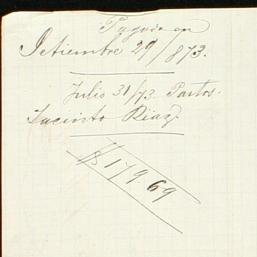 Pagado en
Setiembre 29/873.
Julio 31/73 Pastos.
Jacinto Diaz
$ 179 69